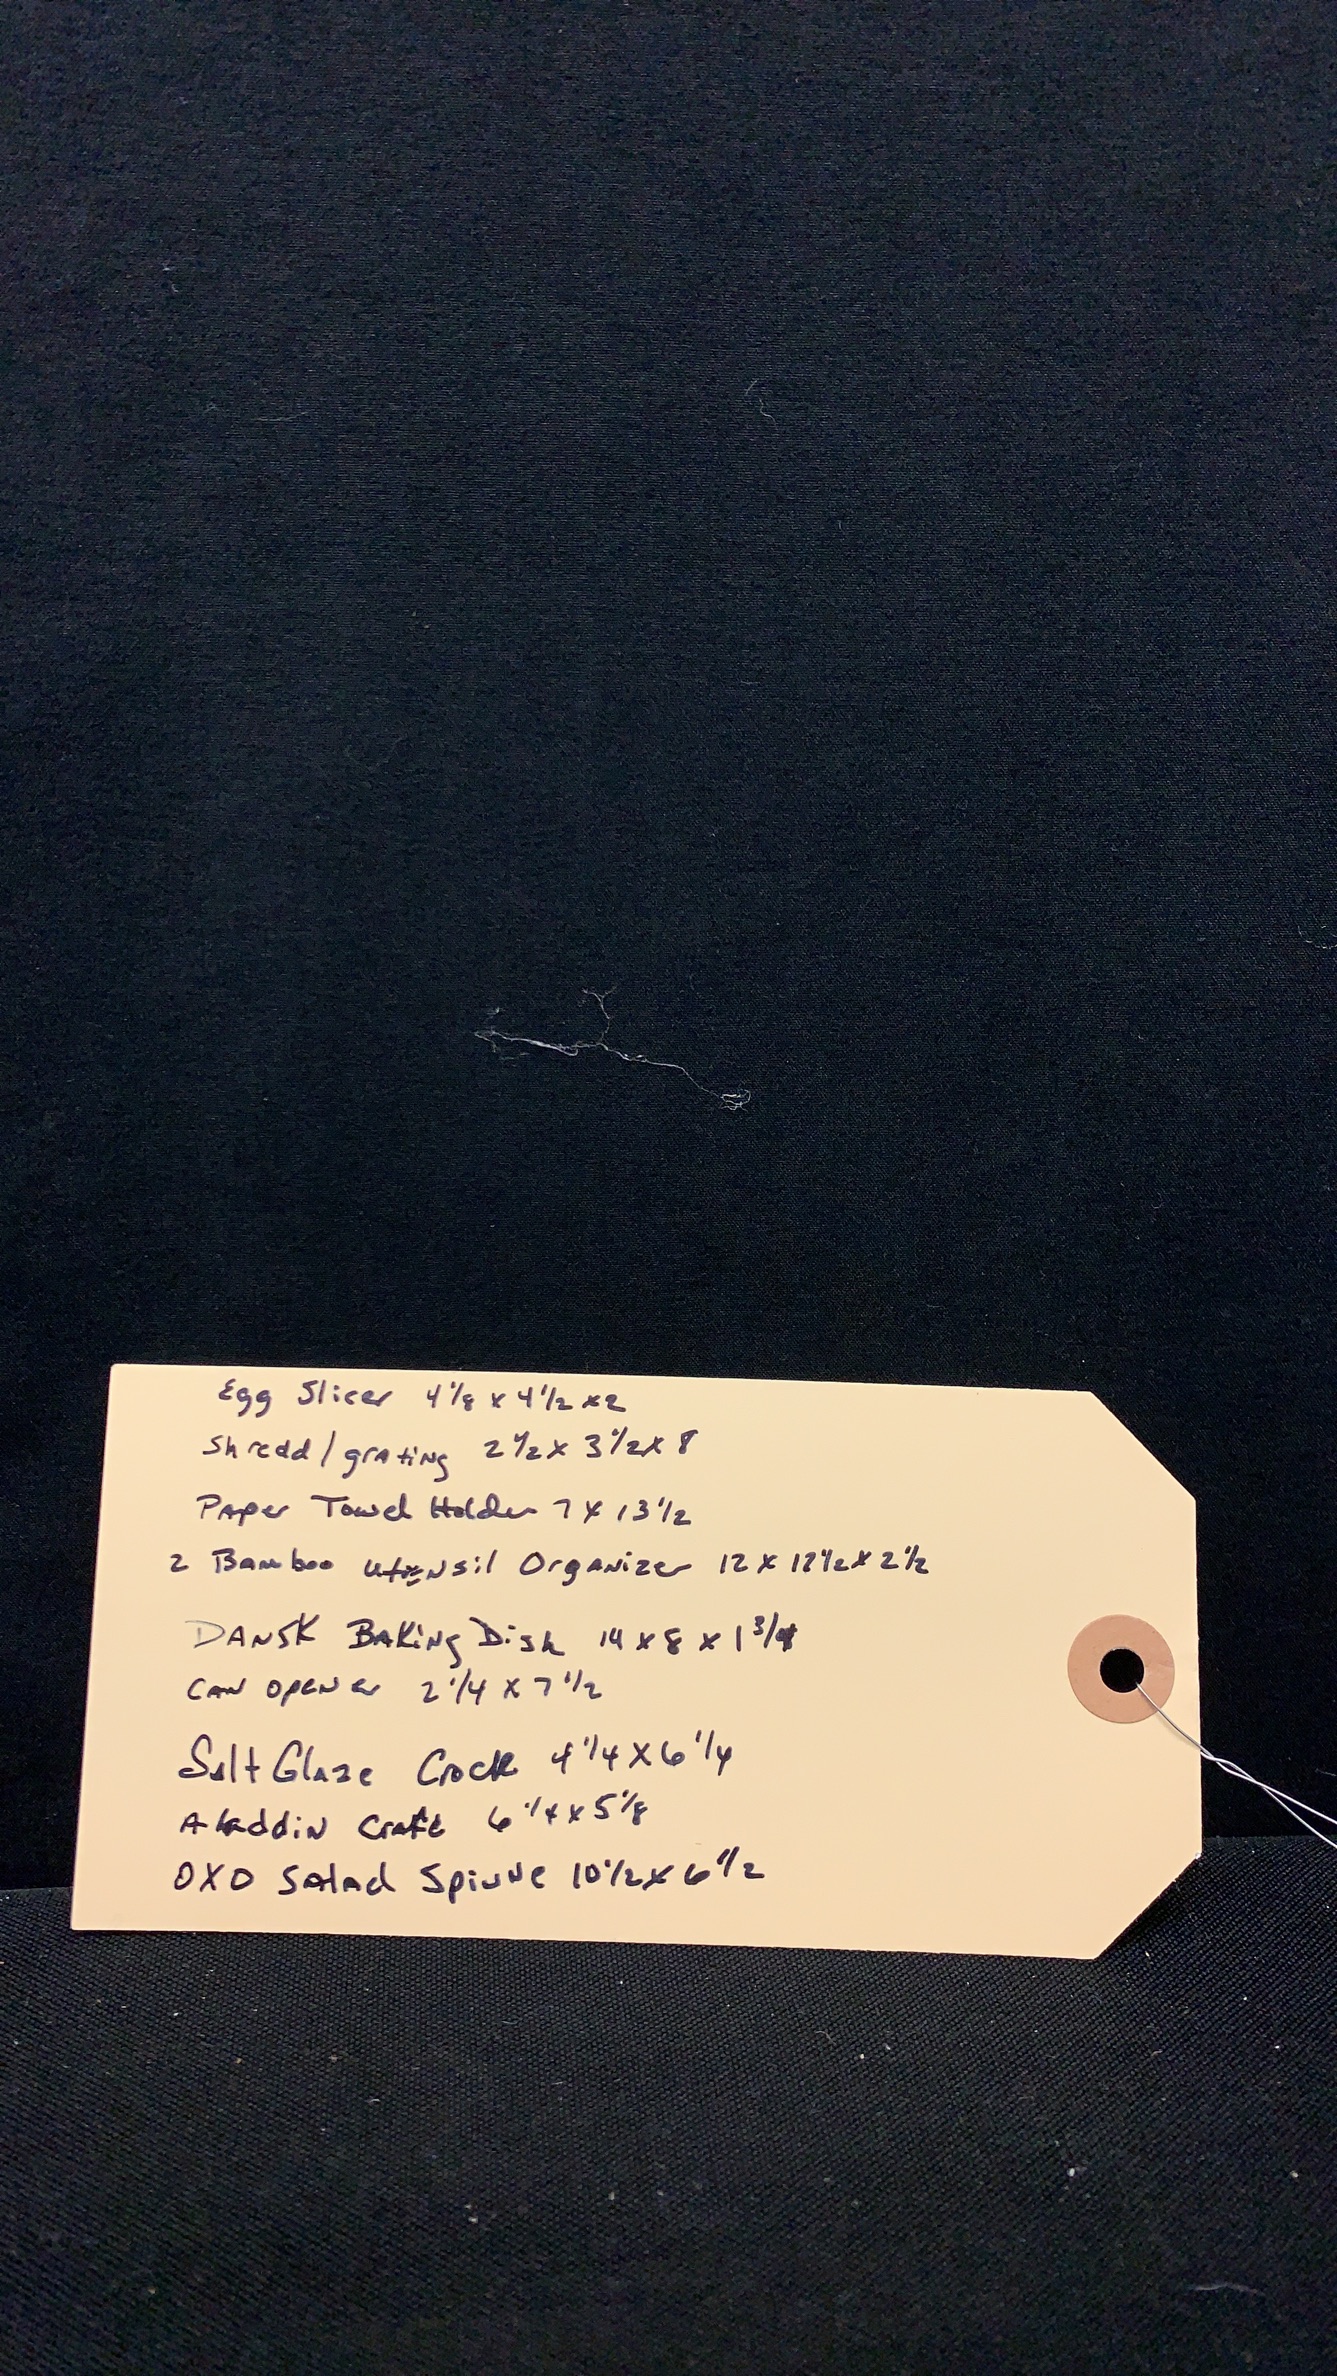 Egg Slicer 4 1/8 x 4 1/2 x 2
Shredd/grating 2 1/2 x 3 1/2 x 8
Paper Towel Holder 7 x 13 1/2
2 Bamboo utensil Organizer 12 x 12 1/2 x 2 1/2
DANSK Baking Dish 14 x 8 x 1 3/4
CAN OPENER 2 1/4 x 7 1/2
Salt Glaze Crock 4 1/4 x 6 1/4
Aladdin 6 1/4 x 5 1/8
OXO Salad Spinne 10 1/2 x 6 1/2